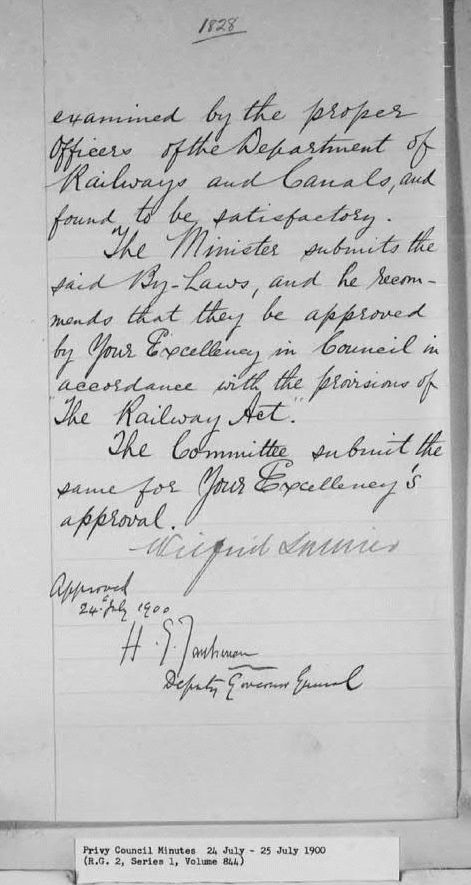 1828
examined by the proper
Officers of the Department of
Railways and Canals, and
found to be satisfactory.
The Minister submits the
said By-Laws, and he recom-
mends that they be approved
by Your Excellency in Council in
accordance with the provisions of
"The Railway Act."
The Committee submit the
same for Your Excellency's
approval.
Wilfrid Laurier
Approved
24th July 1900
H. E.
Deputy Governor General
Privy Council Minutes 24 July - 25 July 1900
(R.G. 2, Series 1, Volume 844)